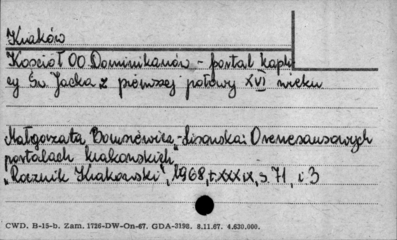 Kraków
Kościół OO Dominikanów - portal kapli
cy Św. Jacka z pierwszej połowy XVI wieku
Małgorzata Borusiewicz-Lisowska: O renesansowych
portalach krakowskich"
"Rocznik Krakowski", 1968, t. XXXIX, s. 71, i. 3
CWD. B-15-b. Zam. 1726-DW-On-67. GDA-3190. 8.11.67. 4.630.000.